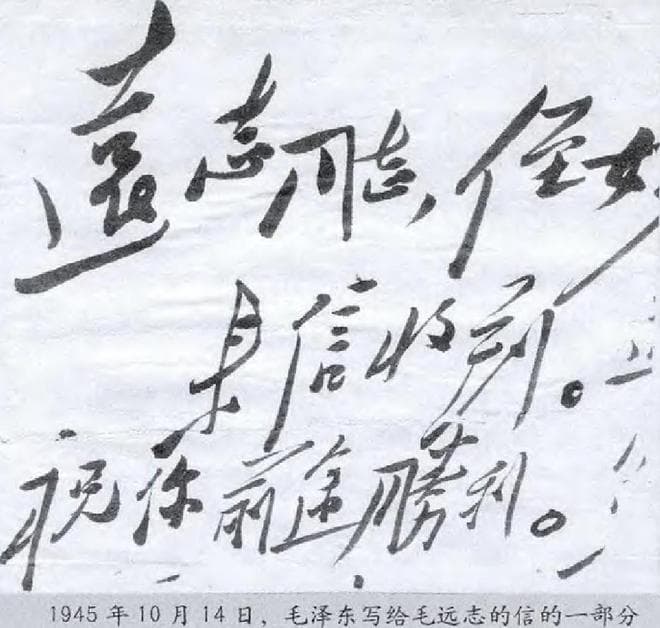 遠志同志，侄女
来信收到。
祝你前途勝利。
1945 年 10 月 14 日，毛泽东写给毛远志的信的一部分